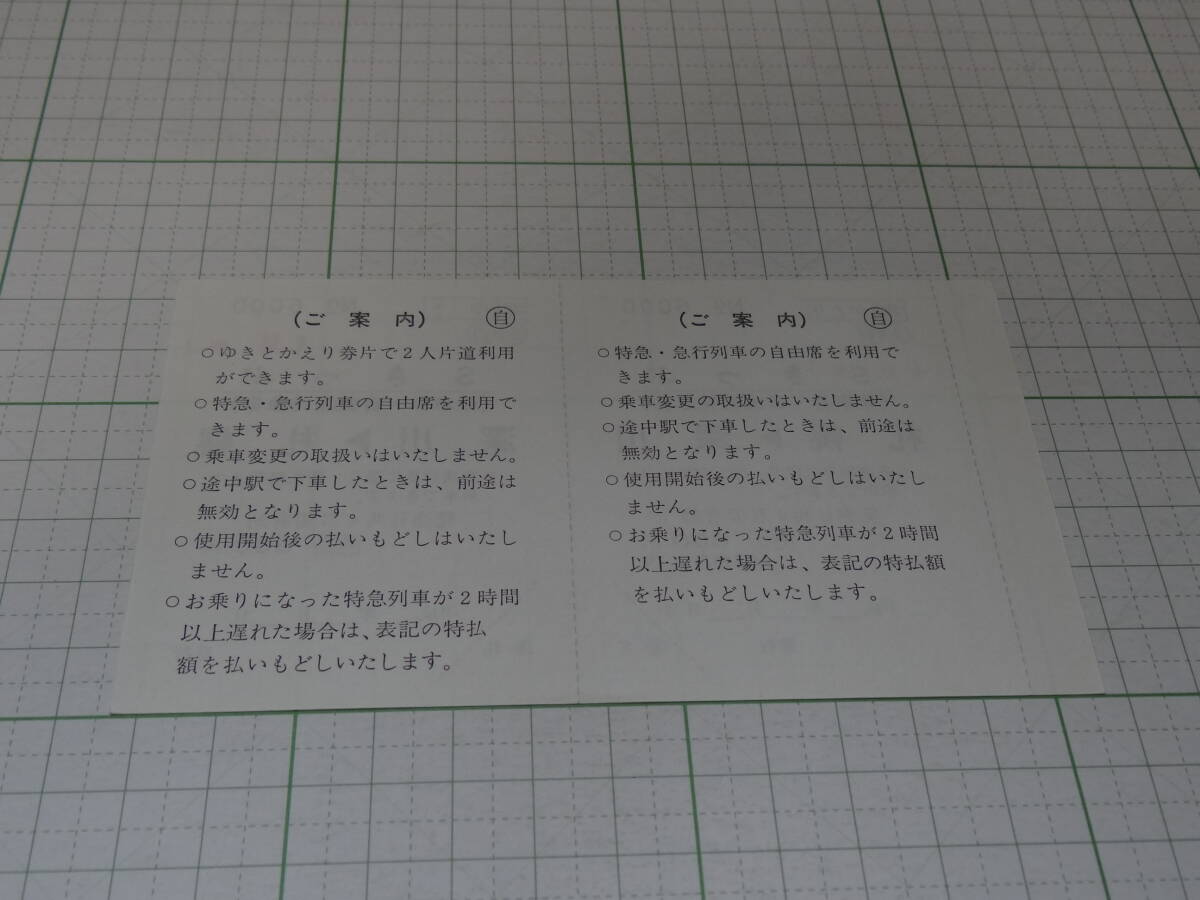 (ご案内) ㊀
○ゆきとかえり券片で2人片道利用
ができます。
○特急・急行列車の自由席を利用で
きます。
○乗車変更の取扱いはいたしません。
○途中駅で下車したときは、前途は
無効となります。
○使用開始後の払いもどしはいたし
ません。
○お乗りになった特急列車が2時間
以上遅れた場合は、表記の特払
額を払いもどしいたします。
(ご案内) 自
○特急・急行列車の自由席を利用で
きます。
○乗車変更の取扱いはいたしません。
○途中駅で下車したときは、前途は
無効となります。
○使用開始後の払いもどしはいたし
ません。
○お乗りになった特急列車が2時間
以上遅れた場合は、表記の特払額
を払いもどしいたします。